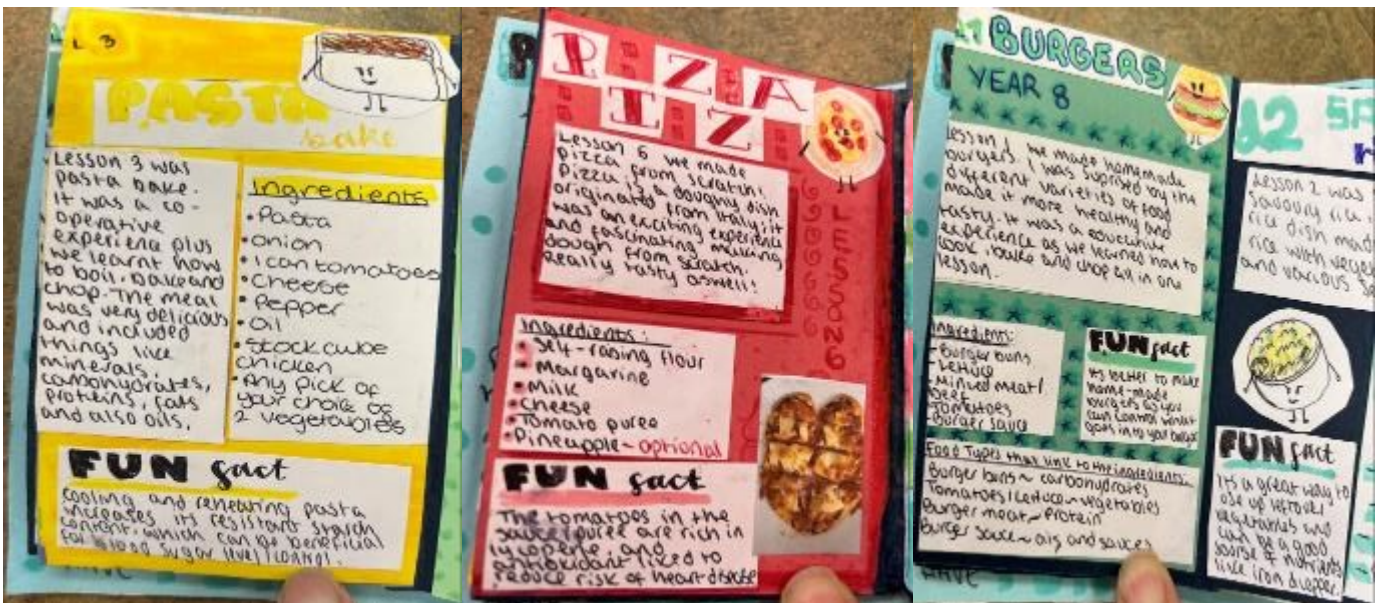 L 3
PASTA
bake
Lesson 3 was
pasta bake.
It was a co-
operative
experienc plus
we learnt how
to boil, bake and
chop. The meal
was very delicious
and included
things like
minerals,
carbohydrates,
proteins, fats
and also oils.
Ingredients
• Pasta
• onion
• 1 can tomatoes
• Cheese
• Pepper
• Oil
• Stock cube
chicken
• Any pick of
your choice of
2 vegetables
FUN fact
Cooling and reheating pasta
increases its resistant starch
content, which can be beneficial
for blood sugar level/control.
PIZZA
Lesson 6 we made
pizza from scratch!
Pizza is a doughy dish
originated from Italy; it
was an exciting experience
and fascinating making
dough from scratch.
Really tasty aswell!
LESSON 6
Ingredients:
• Self-raising flour
• Margarine
• Milk
• Cheese
• Tomato puree
• Pineapple - optional
FUN fact
The tomatoes in the
sauce/puree are rich in
lycopene, and
antioxidant liked to
reduce risk of heart disease
BURGERS
YEAR 8
Lesson 1 we made homemade
burgers. I was suprised by the
different varieties of food
made it more healthy and
tasty. It was a educative
experience as we learned how to
cook, bake and chop all in one
lesson.
Ingredients:
- Burger buns
- Lettuce
- Minced meat/
Beef
- Tomatoes
- Burger sauce
FUN fact
Its better to make
home-made
burgers as you
can control what
goes into your burger
Food Types that link to the ingredients:
Burger buns ~ carbohydrates
Tomatoes/Lettuce ~ vegetables
Burger meat ~ Protein
Burger sauce ~ oils and sauces
Lesson 2 was
savoury rice,
rice dish made
rice with
and various
FUN fact
Its a great way to
use up leftover
vegetables and
can be a good
source of nutrients
like iron &